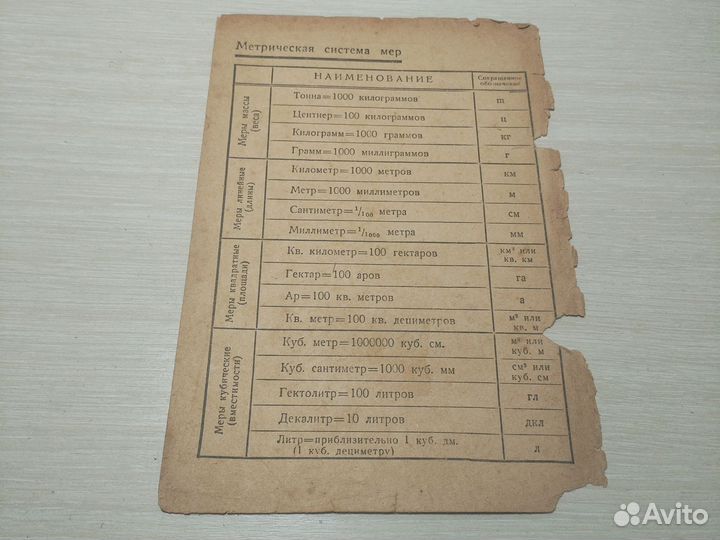 Метрическая система мер
НАИМЕНОВАНИЕ
Сокращенное
обозначение
Меры массы
(веса)
Тонна=1000 килограммов
т
Центнер=100 килограммов
ц
Килограмм=1000 граммов
кг
Грамм=1000 миллиграммов
г
Меры линейные
(длины)
Километр=1000 метров
км
Метр=1000 миллиметров
м
Сантиметр=1/100 метра
см
Миллиметр=1/1000 метра
мм
Меры квадратные
(площади)
Кв. километр=100 гектаров
км² или
кв. км
Гектар=100 аров
га
Ар=100 кв. метров
а
Кв. метр=100 кв. дециметров
м² или
кв. м
Меры кубические
(вместимости)
Куб. метр=1000000 куб. см.
м³ или
куб. м
Куб. сантиметр=1000 куб. мм
см³ или
куб. см
Гектолитр=100 литров
гл
Декалитр=10 литров
дкл
Литр=приблизительно 1 куб. дм.
(1 куб. дециметру)
л
Avito